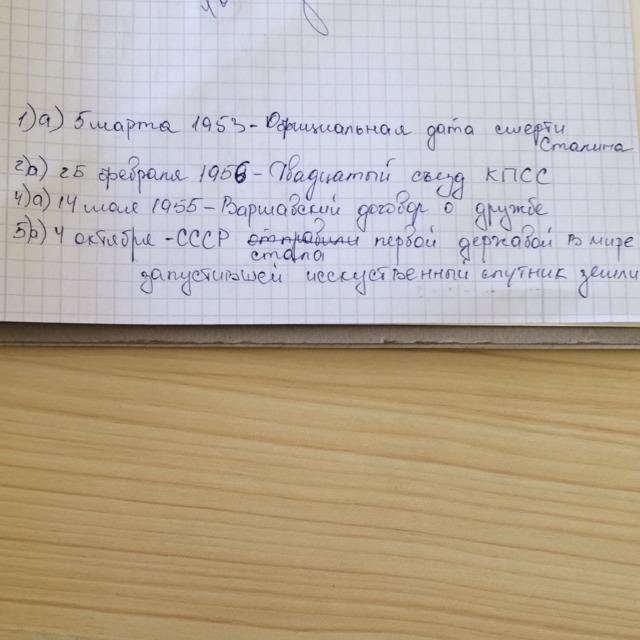 1)а) 5 марта 1953 - Официальная дата смерти
Сталина
2)в) 25 февраля 1956 - Двадцатый съезд КПСС
4)а) 14 мая 1955 - Варшавский договор о дружбе
5)в) 4 октября - СССР отправили первой державой в мире
стала
запустившей исскуственный спутник земли